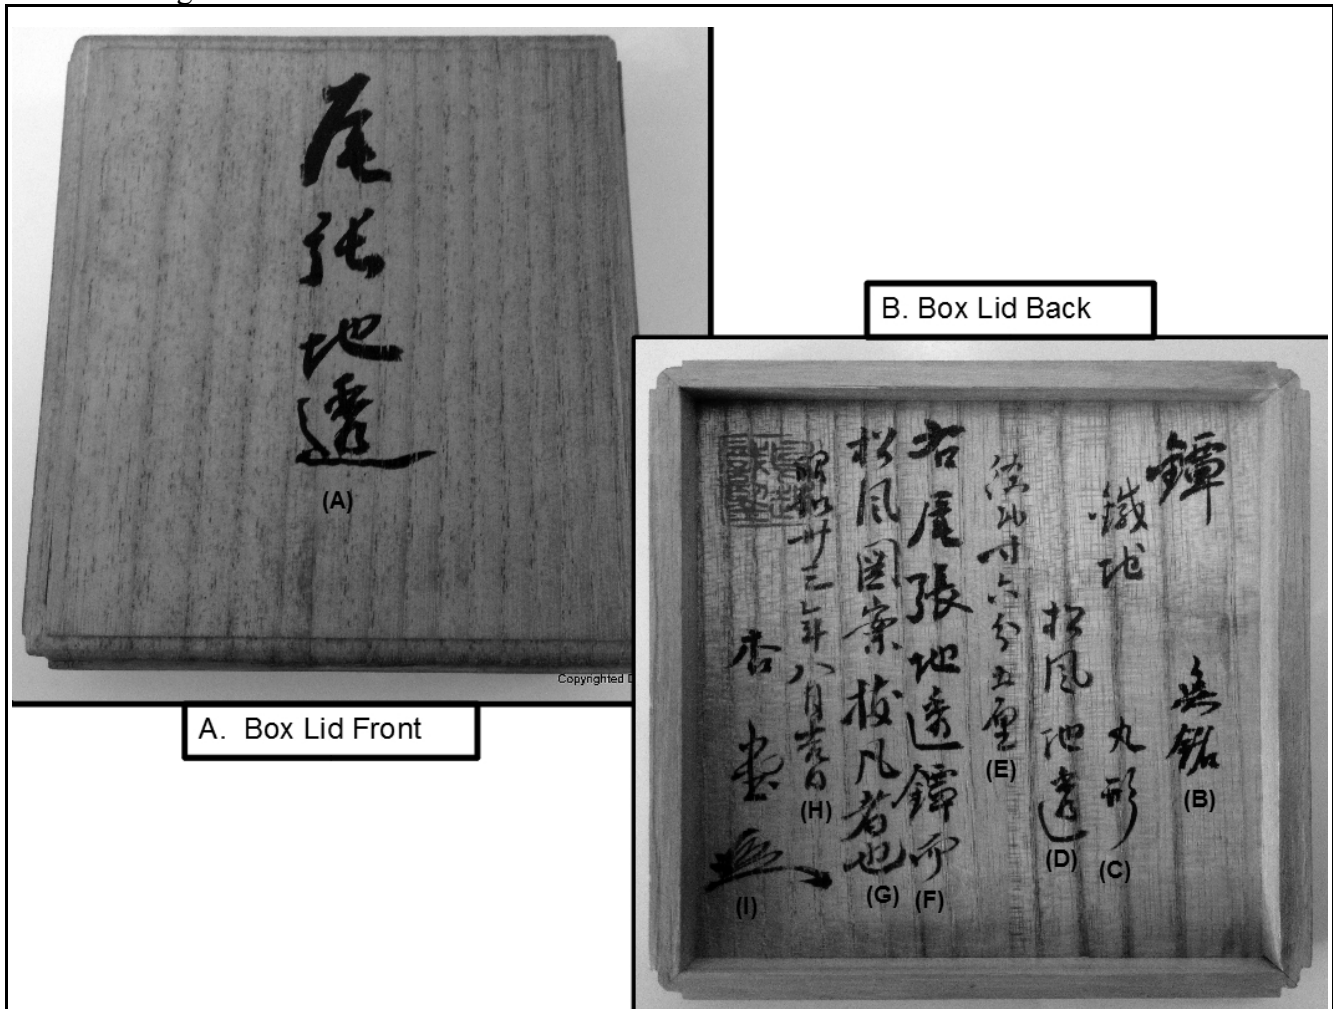 尾張地透
(A)
Copyrighted D
A. Box Lid Front
B. Box Lid Back
鐔 無銘
(B)
鐵地 丸形
(C)
松風地透
(D)
寸六分五厘
(E)
右尾張地透鐔而
(F)
松風図案抜凡者也
(G)
昭和卅三年八月吉日
(H)
杏堂
(I)